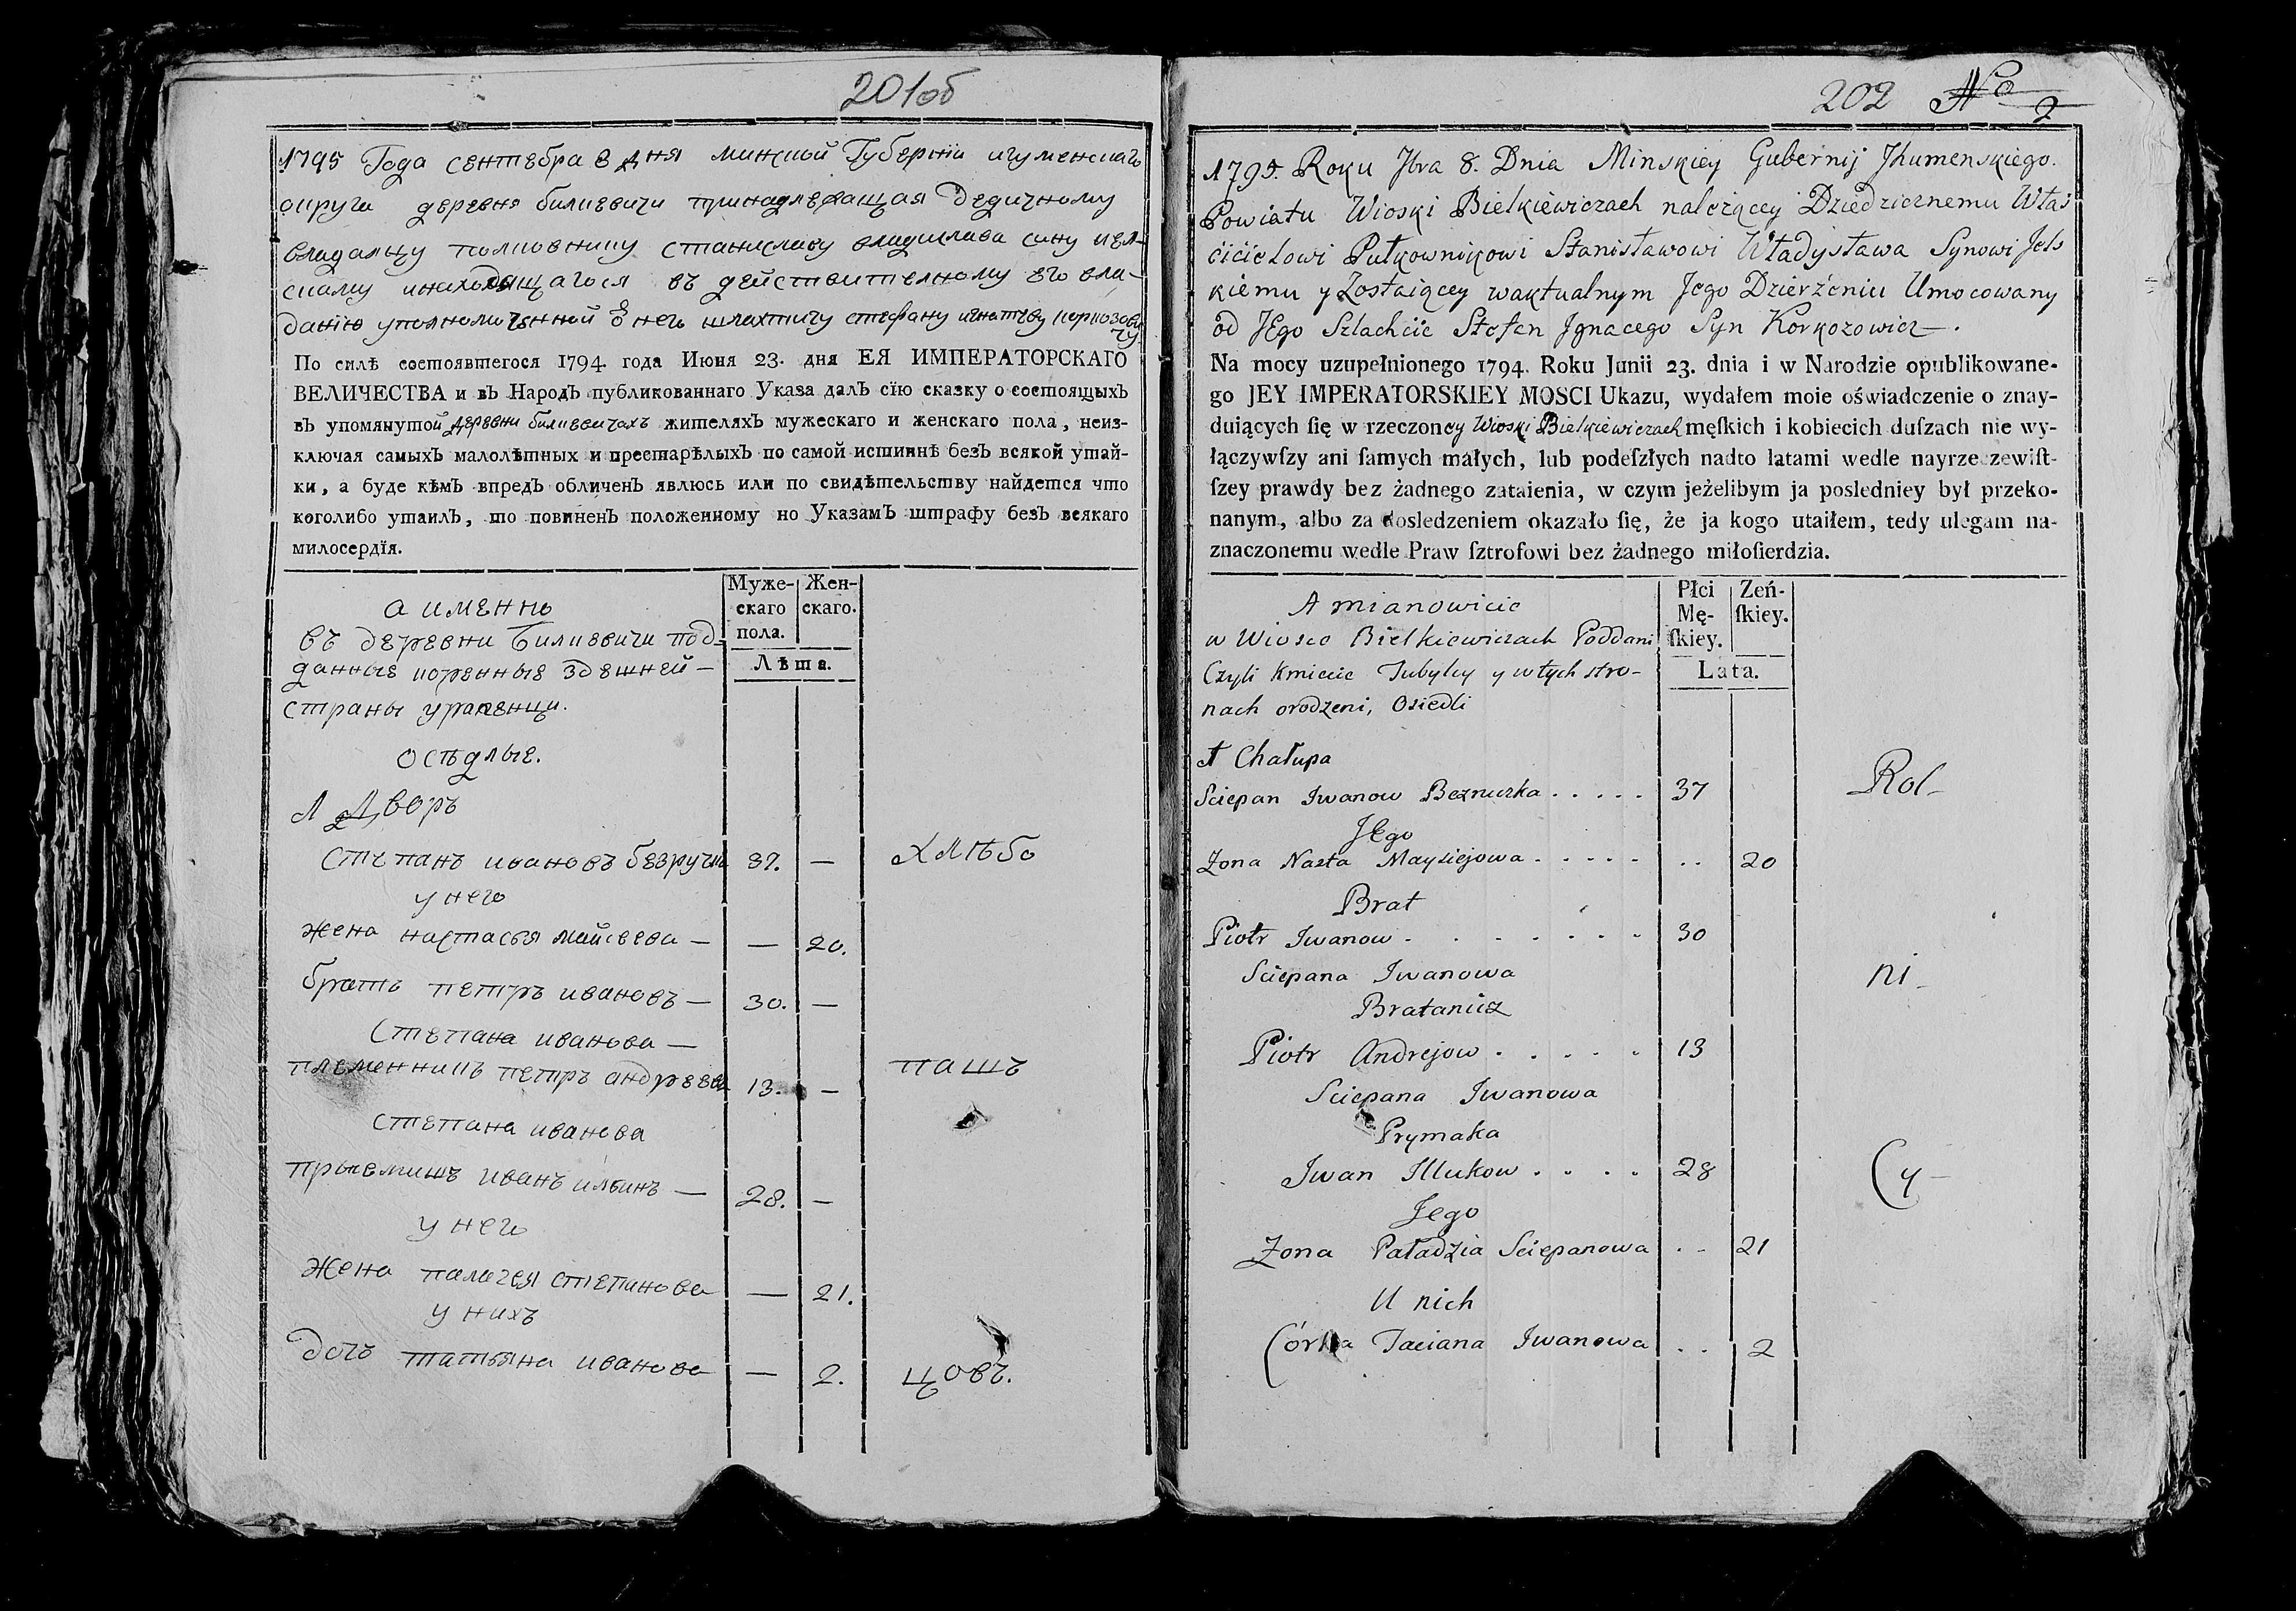 201об
1795 Года сентебра 8 Дня минской Губерніи игуменскаго
округа деревня билкевичи принадлежащая Дедичному
владалцу полковнику станиславу владислава сину иел-
скому инаходящагося въ действителному его вла-
данію уполномоченной о него шляхтичу стефану игнатеву коркозови
чу
По силѣ состоявшегося 1794. года Июня 23. дня ЕЯ ИМПЕРАТОРСКАГО
ВЕЛИЧЕСТВА и вЪ НародЪ публикованнаго Указа далЪ сїю сказку о состоящыхЪ
вЪ упомянутой деревни билкевичахъ жителяхЪ мужескаго и женскаго пола, неиз-
ключая самыхЪ малолѣтныхЪ и престарѣлыхЪ по самой истиннѣ безЪ всякой утай-
ки, а буде кѣмЪ впредЪ обличенЪ явлюсь или по свидѣтельству найдется что
коголибо утаилЪ, то повиненЪ положенному но УказамЪ штрафу безЪ всякаго
милосердїя.
Муже-скаго пола.
Жен-скаго.
Лѣта.
а именно
въ деревни Билкевичи под-
данные коренные здешней-
страны уроженци.
осѣдлые.
Дворъ
Степанъ ивановъ безручка 37. —
у него
жена настасья майсеева — — 20.
братъ петръ ивановъ — 30. —
Степана иванова —
племенникъ петръ андреевъ 13. —
степана иванова
прыемишъ иванъ ильинъ — 28. —
у него
жена палагея степанова — 21.
у нихъ
дочъ татьяна иванова — 2.
хлѣбо
пашъ
цовъ.
202 No 2
1795. Roku 7bra 8. Dnia Minskiey Gubernij Jhumenskiego.
Powiatu Wioski Bielkiewiczach należącey Dziedzicznemu Właś
cicielowi Pułkownikowi Stanisławowi Władysława Synowi Jels
kiemu y Zostaiącey waktualnym Jego Dzierżeniu Umocowany
od JEgo Szlachcic Stefan Jgnacego Syn Korkozowicz.
Na mocy uzupełnionego 1794. Roku Junii 23. dnia i w Narodzie opublikowane-
go JEY IMPERATORSKIEY MOSCI Ukazu, wydałem moie oświadczenie o znay-
duiących ſię w rzeczoney Wioski Bielkiewiczach męſkich i kobiecich duſzach nie wy-
łączywſzy ani ſamych małych, lub podeſzłych nadto latami wedle nayrzeczewiſt-
ſzey prawdy bez żadnego zataienia, w czym jeżelibym ja posledniey był przeko-
nanym, albo za dosledzeniem okazało ſię, że ja kogo utaiłem, tedy ulegam na-
znaczonemu wedle Praw ſztrofowi bez żadnego miłoſierdzia.
Płci Mę-ſkiey.
Zeń-ſkiey.
Lata.
A mianowicie
w Wiosce Bielkiewiczach Poddani
Czyli Kmiecie Tubylcy y w tych stro-
nach orodzeni, Osiedli
Chałupa
Sciepan Iwanow Bezruczka . . . . . 37
JEgo
Zona Nasta Maysiejowa . . . . . . . 20
Brat
Piotr Iwanow . . . . . . . 30
Sciepana Iwanowa
Bratanicz
Piotr Andrejow . . . . . 13
Sciepana Iwanowa
Prymaka
Iwan Illukow . . . . 28
Jego
Zona Paładzia Sciepanowa . . 21
U nich
Córka Taciana Iwanowa . . 2
Rol-
ni-
Cy-